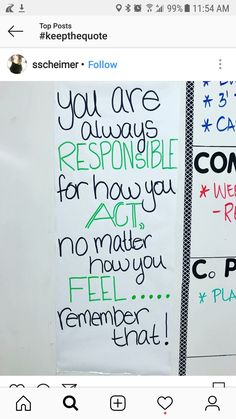 99% 11:54 AM
Top Posts
#keepthequote
sscheimer • Follow
you are
always
RESPONSIBLE
for how you
ACT,
no matter
how you
FEEL.....
remember
that!
* 3'
* CA
CON
* WE
- RE
C. P
* PLA